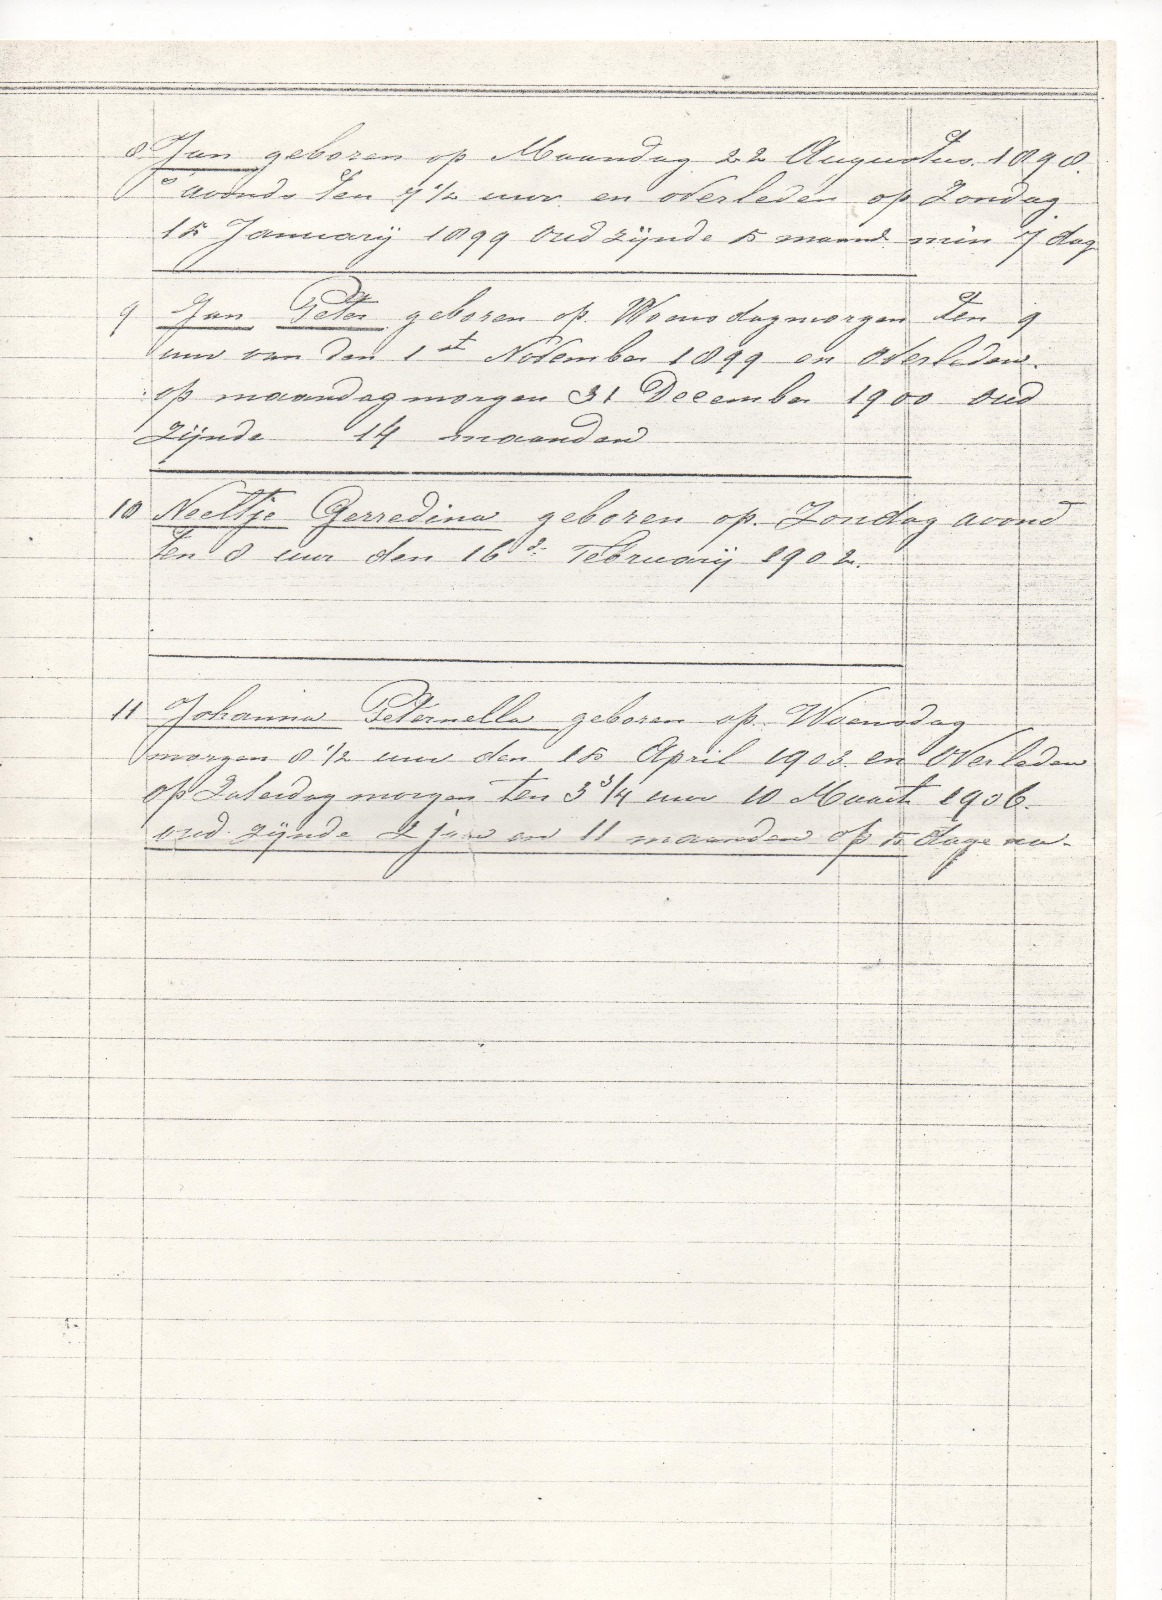 8 Jan geboren op Maandag 22 Augustus 1898.
's avonds ten 7 1/2 uur en overleden op Zondag
15 Januarij 1899 oud zijnde 5 maand min 7 dag
9 Jan Peter geboren op Woensdagmorgen ten 9
uur van den 1st November 1899 en overleden
op maandagmorgen 31 December 1900 oud
zijnde 14 maanden
10 Neeltje Gerredina geboren op Zondag avond
ten 8 uur den 16d Februarij 1902.
11 Johanna Peternella geboren op Woensdag
morgen 8 1/2 uur den 15 April 1903 en Overleden
op Zaterdag morgen ten 3 3/4 uur 10 Maart 1906.
oud zijnde 2 jaar en 11 maanden op 5 dage na.